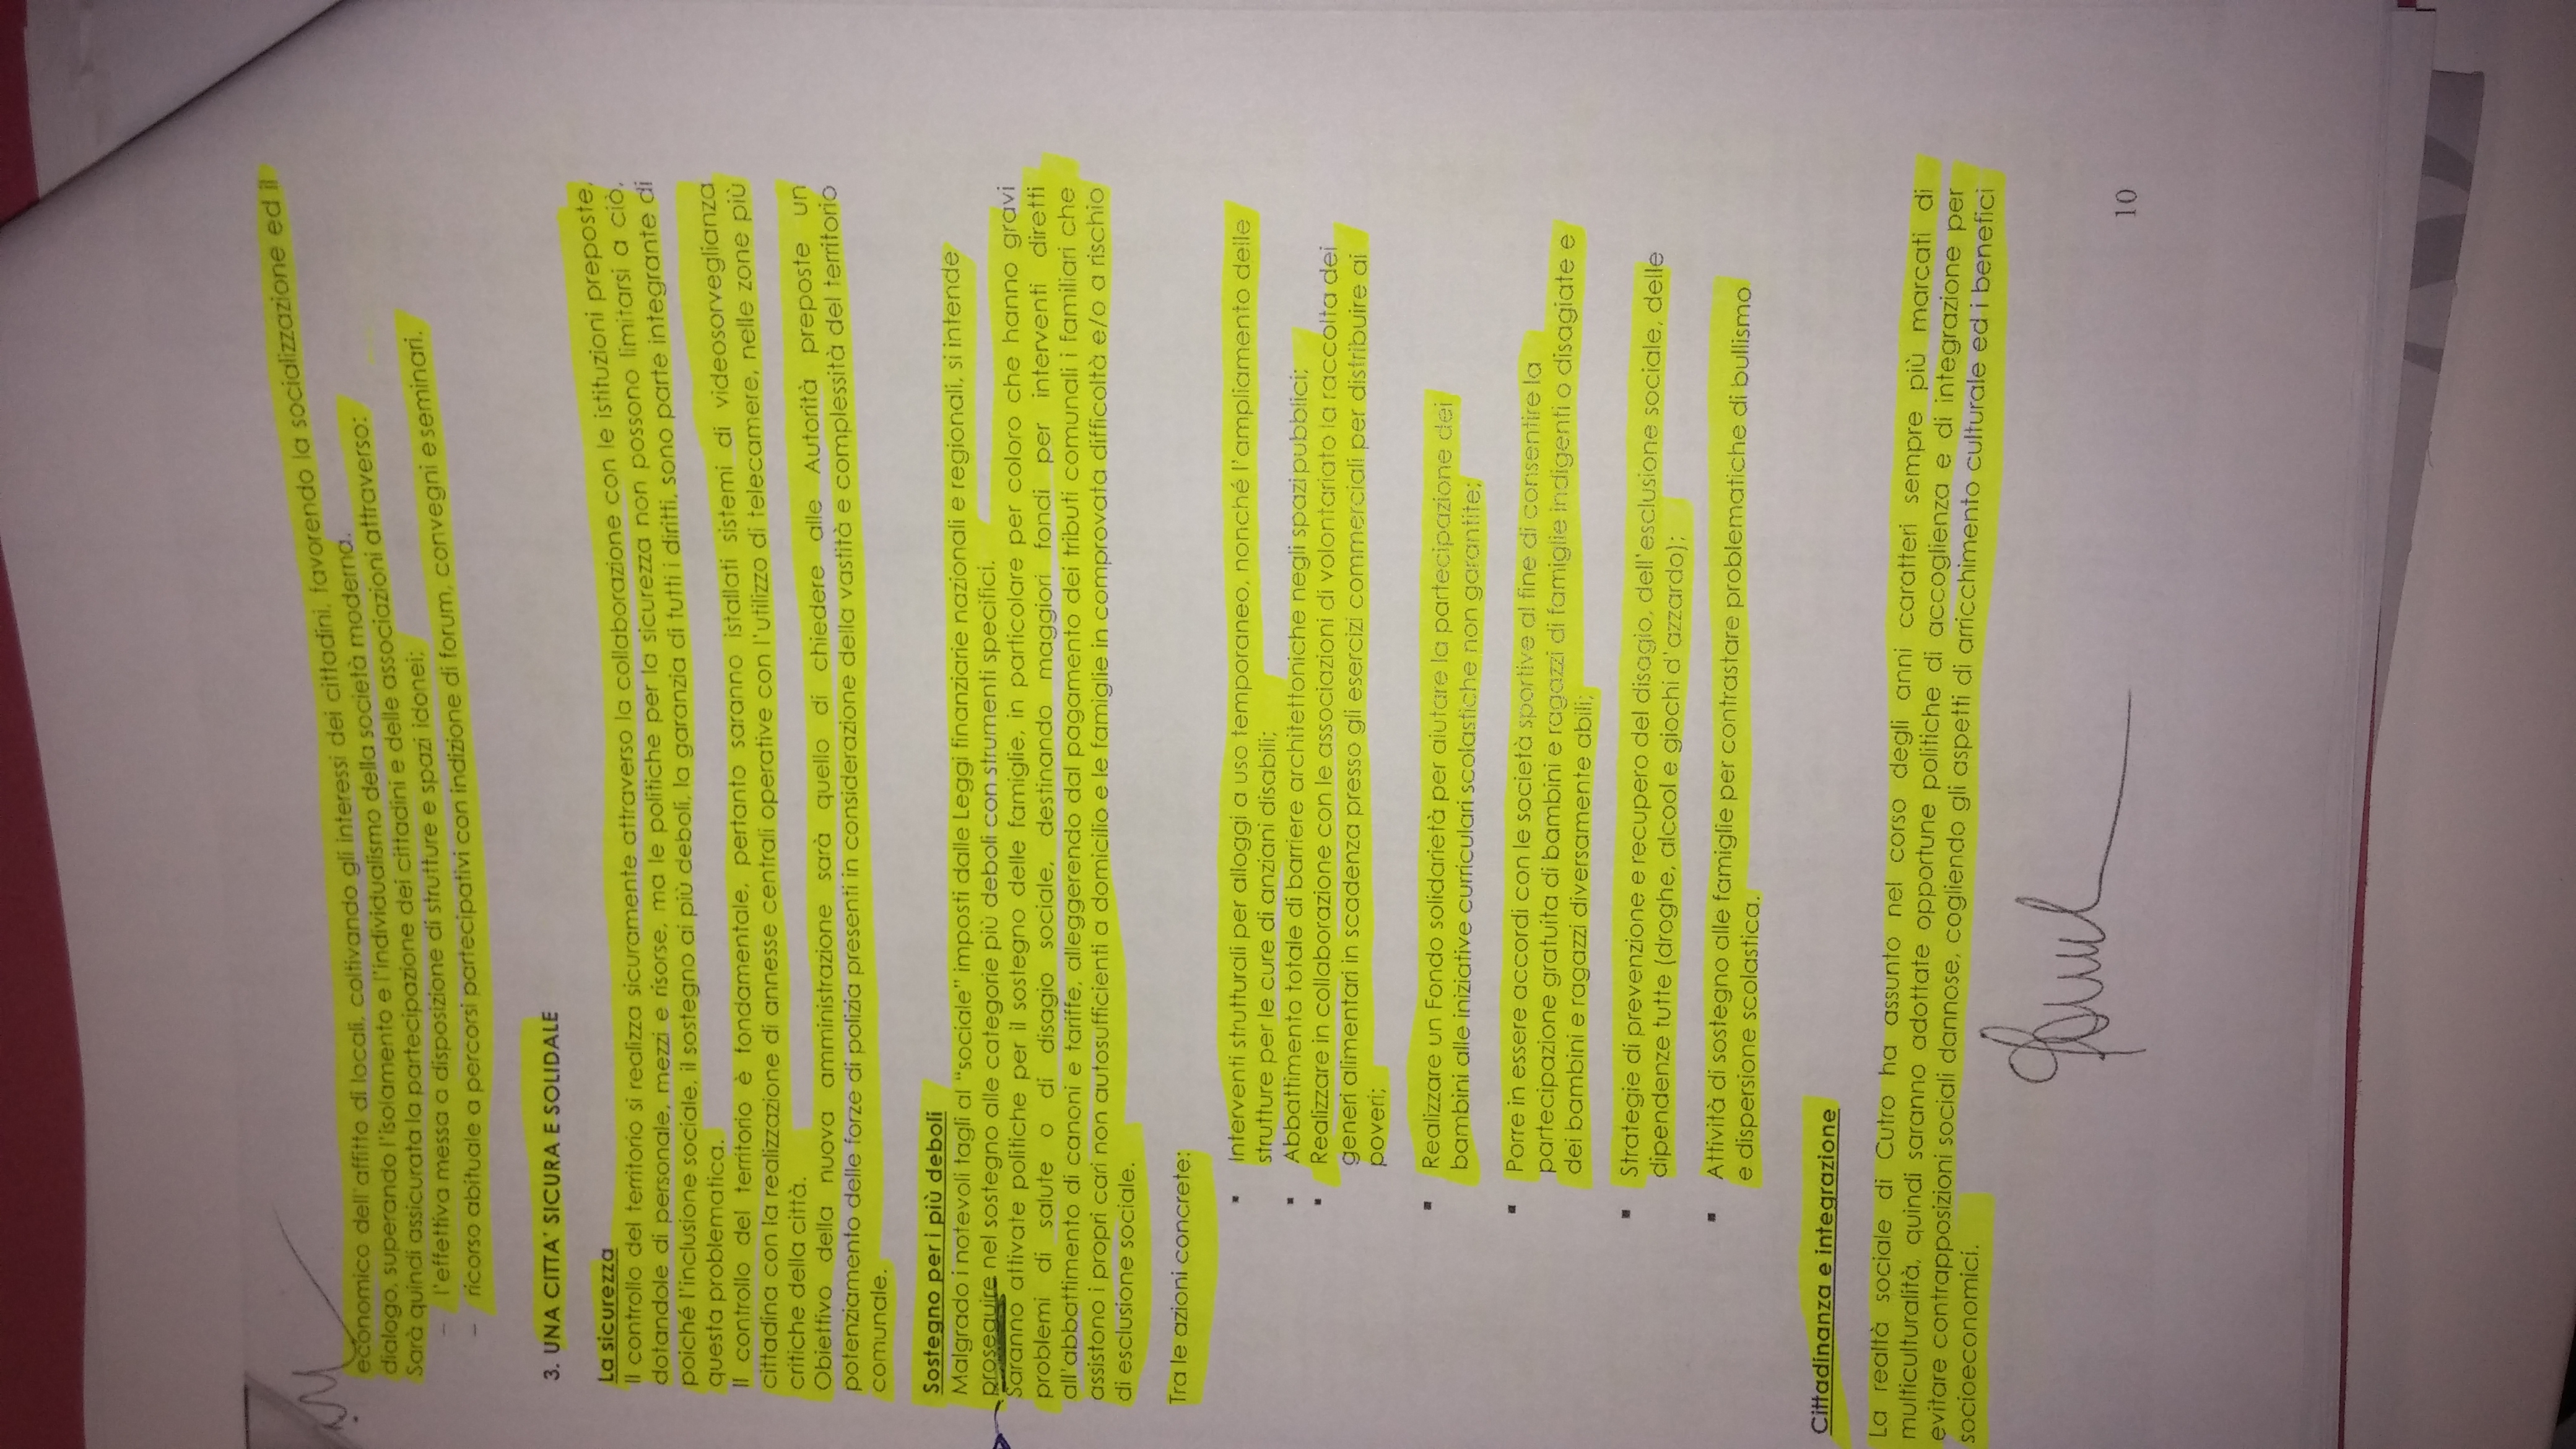 economico dell'affitto di locali, coltivando gli interessi dei cittadini, favorendo la socializzazione ed il
dialogo, superando l'isolamento e l'individualismo della società moderna.
Sarà quindi assicurata la partecipazione dei cittadini e delle associazioni attraverso:
– l'effettiva messa a disposizione di strutture e spazi idonei;
– ricorso abituale a percorsi partecipativi con indizione di forum, convegni e seminari.
3. UNA CITTA' SICURA E SOLIDALE
La sicurezza
Il controllo del territorio si realizza sicuramente attraverso la collaborazione con le istituzioni preposte,
dotandole di personale, mezzi e risorse, ma le politiche per la sicurezza non possono limitarsi a ciò,
poiché l'inclusione sociale, il sostegno ai più deboli, la garanzia di tutti i diritti, sono parte integrante di
questa problematica.
Il controllo del territorio è fondamentale, pertanto saranno istallati sistemi di videosorveglianza
cittadina con la realizzazione di annesse centrali operative con l'utilizzo di telecamere, nelle zone più
critiche della città.
Obiettivo della nuova amministrazione sarà quello di chiedere alle Autorità preposte un
potenziamento delle forze di polizia presenti in considerazione della vastità e complessità del territorio
comunale.
Sostegno per i più deboli
Malgrado i notevoli tagli al "sociale" imposti dalle Leggi finanziarie nazionali e regionali, si intende
proseguire nel sostegno alle categorie più deboli con strumenti specifici.
Saranno attivate politiche per il sostegno delle famiglie, in particolare per coloro che hanno gravi
problemi di salute o di disagio sociale, destinando maggiori fondi per interventi diretti
all'abbattimento di canoni e tariffe, alleggerendo dal pagamento dei tributi comunali i familiari che
assistono i propri cari non autosufficienti a domicilio e le famiglie in comprovata difficoltà e/o a rischio
di esclusione sociale.
Tra le azioni concrete:
▪ Interventi strutturali per alloggi a uso temporaneo, nonché l'ampliamento delle
strutture per le cure di anziani disabili;
▪ Abbattimento totale di barriere architettoniche negli spazi pubblici;
▪ Realizzare in collaborazione con le associazioni di volontariato la raccolta dei
generi alimentari in scadenza presso gli esercizi commerciali per distribuire ai
poveri;
▪ Realizzare un Fondo solidarietà per aiutare la partecipazione dei
bambini alle iniziative curriculari scolastiche non garantite;
▪ Porre in essere accordi con le società sportive al fine di consentire la
partecipazione gratuita di bambini e ragazzi di famiglie indigenti o disagiate e
dei bambini e ragazzi diversamente abili;
▪ Strategie di prevenzione e recupero del disagio, dell'esclusione sociale, delle
dipendenze tutte (droghe, alcool e giochi d'azzardo);
▪ Attività di sostegno alle famiglie per contrastare problematiche di bullismo
e dispersione scolastica.
Cittadinanza e integrazione
La realtà sociale di Cutro ha assunto nel corso degli anni caratteri sempre più marcati di
multiculturalità, quindi saranno adottate opportune politiche di accoglienza e di integrazione per
evitare contrapposizioni sociali dannose, cogliendo gli aspetti di arricchimento culturale ed i benefici
socioeconomici.
10